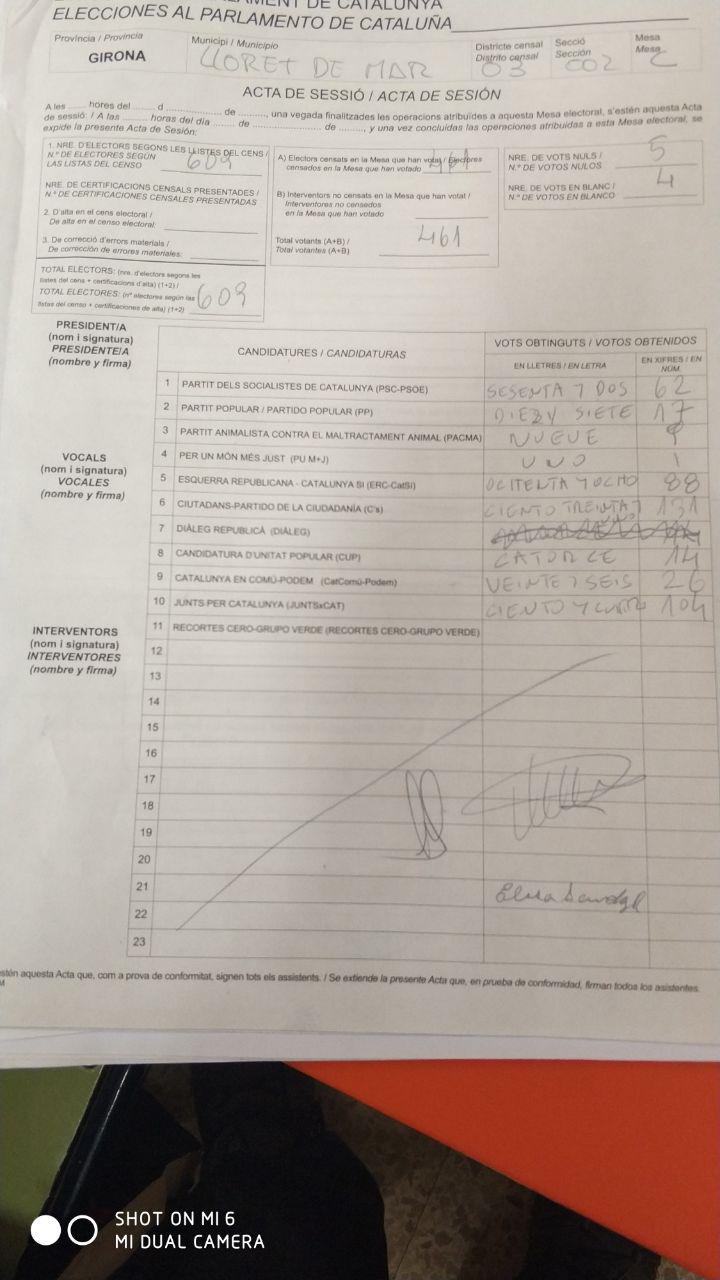 PARLAMENT DE CATALUNYA
ELECCIONES AL PARLAMENTO DE CATALUÑA
Província / Provincia
GIRONA
Municipi / Municipio
LLORET DE MAR
Districte censal
Distrito censal
03
Secció
Sección
002
Mesa
Mesa
C
ACTA DE SESSIÓ / ACTA DE SESIÓN
A les ...... hores del ...... d ...................... de .........., una vegada finalitzades les operacions atribuïdes a aquesta Mesa electoral, s'estén aquesta Acta
de sessió: / A las ........ horas del día ....... de ...................... de ........, y una vez concluidas las operaciones atribuidas a esta Mesa electoral, se
expide la presente Acta de Sesión:
1. NRE. D'ELECTORS SEGONS LES LLISTES DEL CENS /
N.º DE ELECTORES SEGÚN
LAS LISTAS DEL CENSO
609
NRE. DE CERTIFICACIONS CENSALS PRESENTADES /
N.º DE CERTIFICACIONES CENSALES PRESENTADAS
2. D'alta en el cens electoral /
De alta en el censo electoral:
3. De correcció d'errors materials /
De corrección de errores materiales:
TOTAL ELECTORS: (nre. d'electors segons les
llistes del cens + certificacions d'alta) (1+2) /
TOTAL ELECTORES: (nº electores según las
listas del censo + certificaciones de alta) (1+2)
609
A) Electors censats en la Mesa que han votat / Electores
censados en la Mesa que han votado
461
B) Interventors no censats en la Mesa que han votat /
Interventores no censados
en la Mesa que han votado
Total votants (A+B) /
Total votantes (A+B)
461
NRE. DE VOTS NULS /
N.º DE VOTOS NULOS
5
NRE. DE VOTS EN BLANC /
N.º DE VOTOS EN BLANCO
4
PRESIDENT/A
(nom i signatura)
PRESIDENTE/A
(nombre y firma)
VOCALS
(nom i signatura)
VOCALES
(nombre y firma)
INTERVENTORS
(nom i signatura)
INTERVENTORES
(nombre y firma)
CANDIDATURES / CANDIDATURAS
VOTS OBTINGUTS / VOTOS OBTENIDOS
EN LLETRES / EN LETRA
EN XIFRES / EN NÚM.
1 PARTIT DELS SOCIALISTES DE CATALUNYA (PSC-PSOE) SESENTA Y DOS 62
2 PARTIT POPULAR / PARTIDO POPULAR (PP) DIEZ Y SIETE 17
3 PARTIT ANIMALISTA CONTRA EL MALTRACTAMENT ANIMAL (PACMA) NUEVE 9
4 PER UN MÓN MÉS JUST (PU M+J) UNO 1
5 ESQUERRA REPUBLICANA - CATALUNYA SÍ (ERC-CatSí) OCHENTA Y OCHO 88
6 CIUTADANS-PARTIDO DE LA CIUDADANÍA (C's) CIENTO TREINTA 131
7 DIÀLEG REPUBLICÀ (DIÀLEG)
8 CANDIDATURA D'UNITAT POPULAR (CUP) CATORCE 14
9 CATALUNYA EN COMÚ-PODEM (CatComú-Podem) VEINTE Y SEIS 26
10 JUNTS PER CATALUNYA (JUNTSxCAT) CIENTO Y CUATRO 104
11 RECORTES CERO-GRUPO VERDE (RECORTES CERO-GRUPO VERDE)
12
13
14
15
16
17
18
19
20
21
22
23
estén aquesta Acta que, com a prova de conformitat, signen tots els assistents. / Se extiende la presente Acta que, en prueba de conformidad, firman todos los asistentes.
SHOT ON MI 6
MI DUAL CAMERA